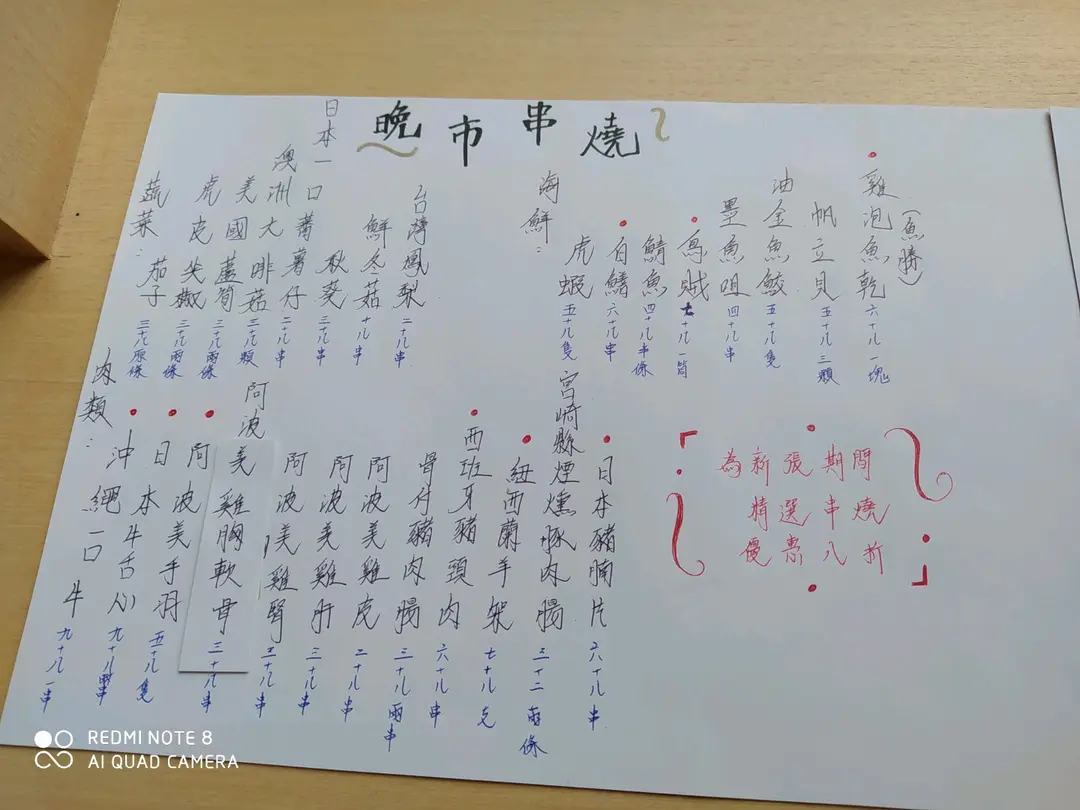 晚市串燒
蔬菜：
茄子 三十八原條
虎皮尖椒 三十八兩條
美國蘆筍 三十八兩條
澳洲大啡菇 三十八顆
日本一口蕃薯仔 二十八串
秋葵 三十八串
鮮冬菇 十八串
台灣鳳梨 二十八串
海鮮：
虎蝦 五十八隻
白鱔 六十八串
鯖魚 四十八半條
烏賊 七十八一筒
墨魚咀 四十八串
油金魚鮫 五十八隻
帆立貝 五十八三顆
雞泡魚乾（魚勝） 六十八一塊
肉類：
沖繩一口牛 九十八一串
日本牛舌心 九十八串
阿波美手羽 五十八隻
阿波美雞胸軟骨 三十八串
阿波美雞腎 三十八串
阿波美雞肝 三十八串
阿波美雞皮 二十八串
骨付豬肉腸 三十八兩串
西班牙豬頸肉 六十八串
紐西蘭羊架 七十八支
宮崎縣煙燻豚肉腸 三十二兩條
日本豬腩片 六十八串
為新張期間
精選串燒
優惠八折
REDMI NOTE 8
AI QUAD CAMERA